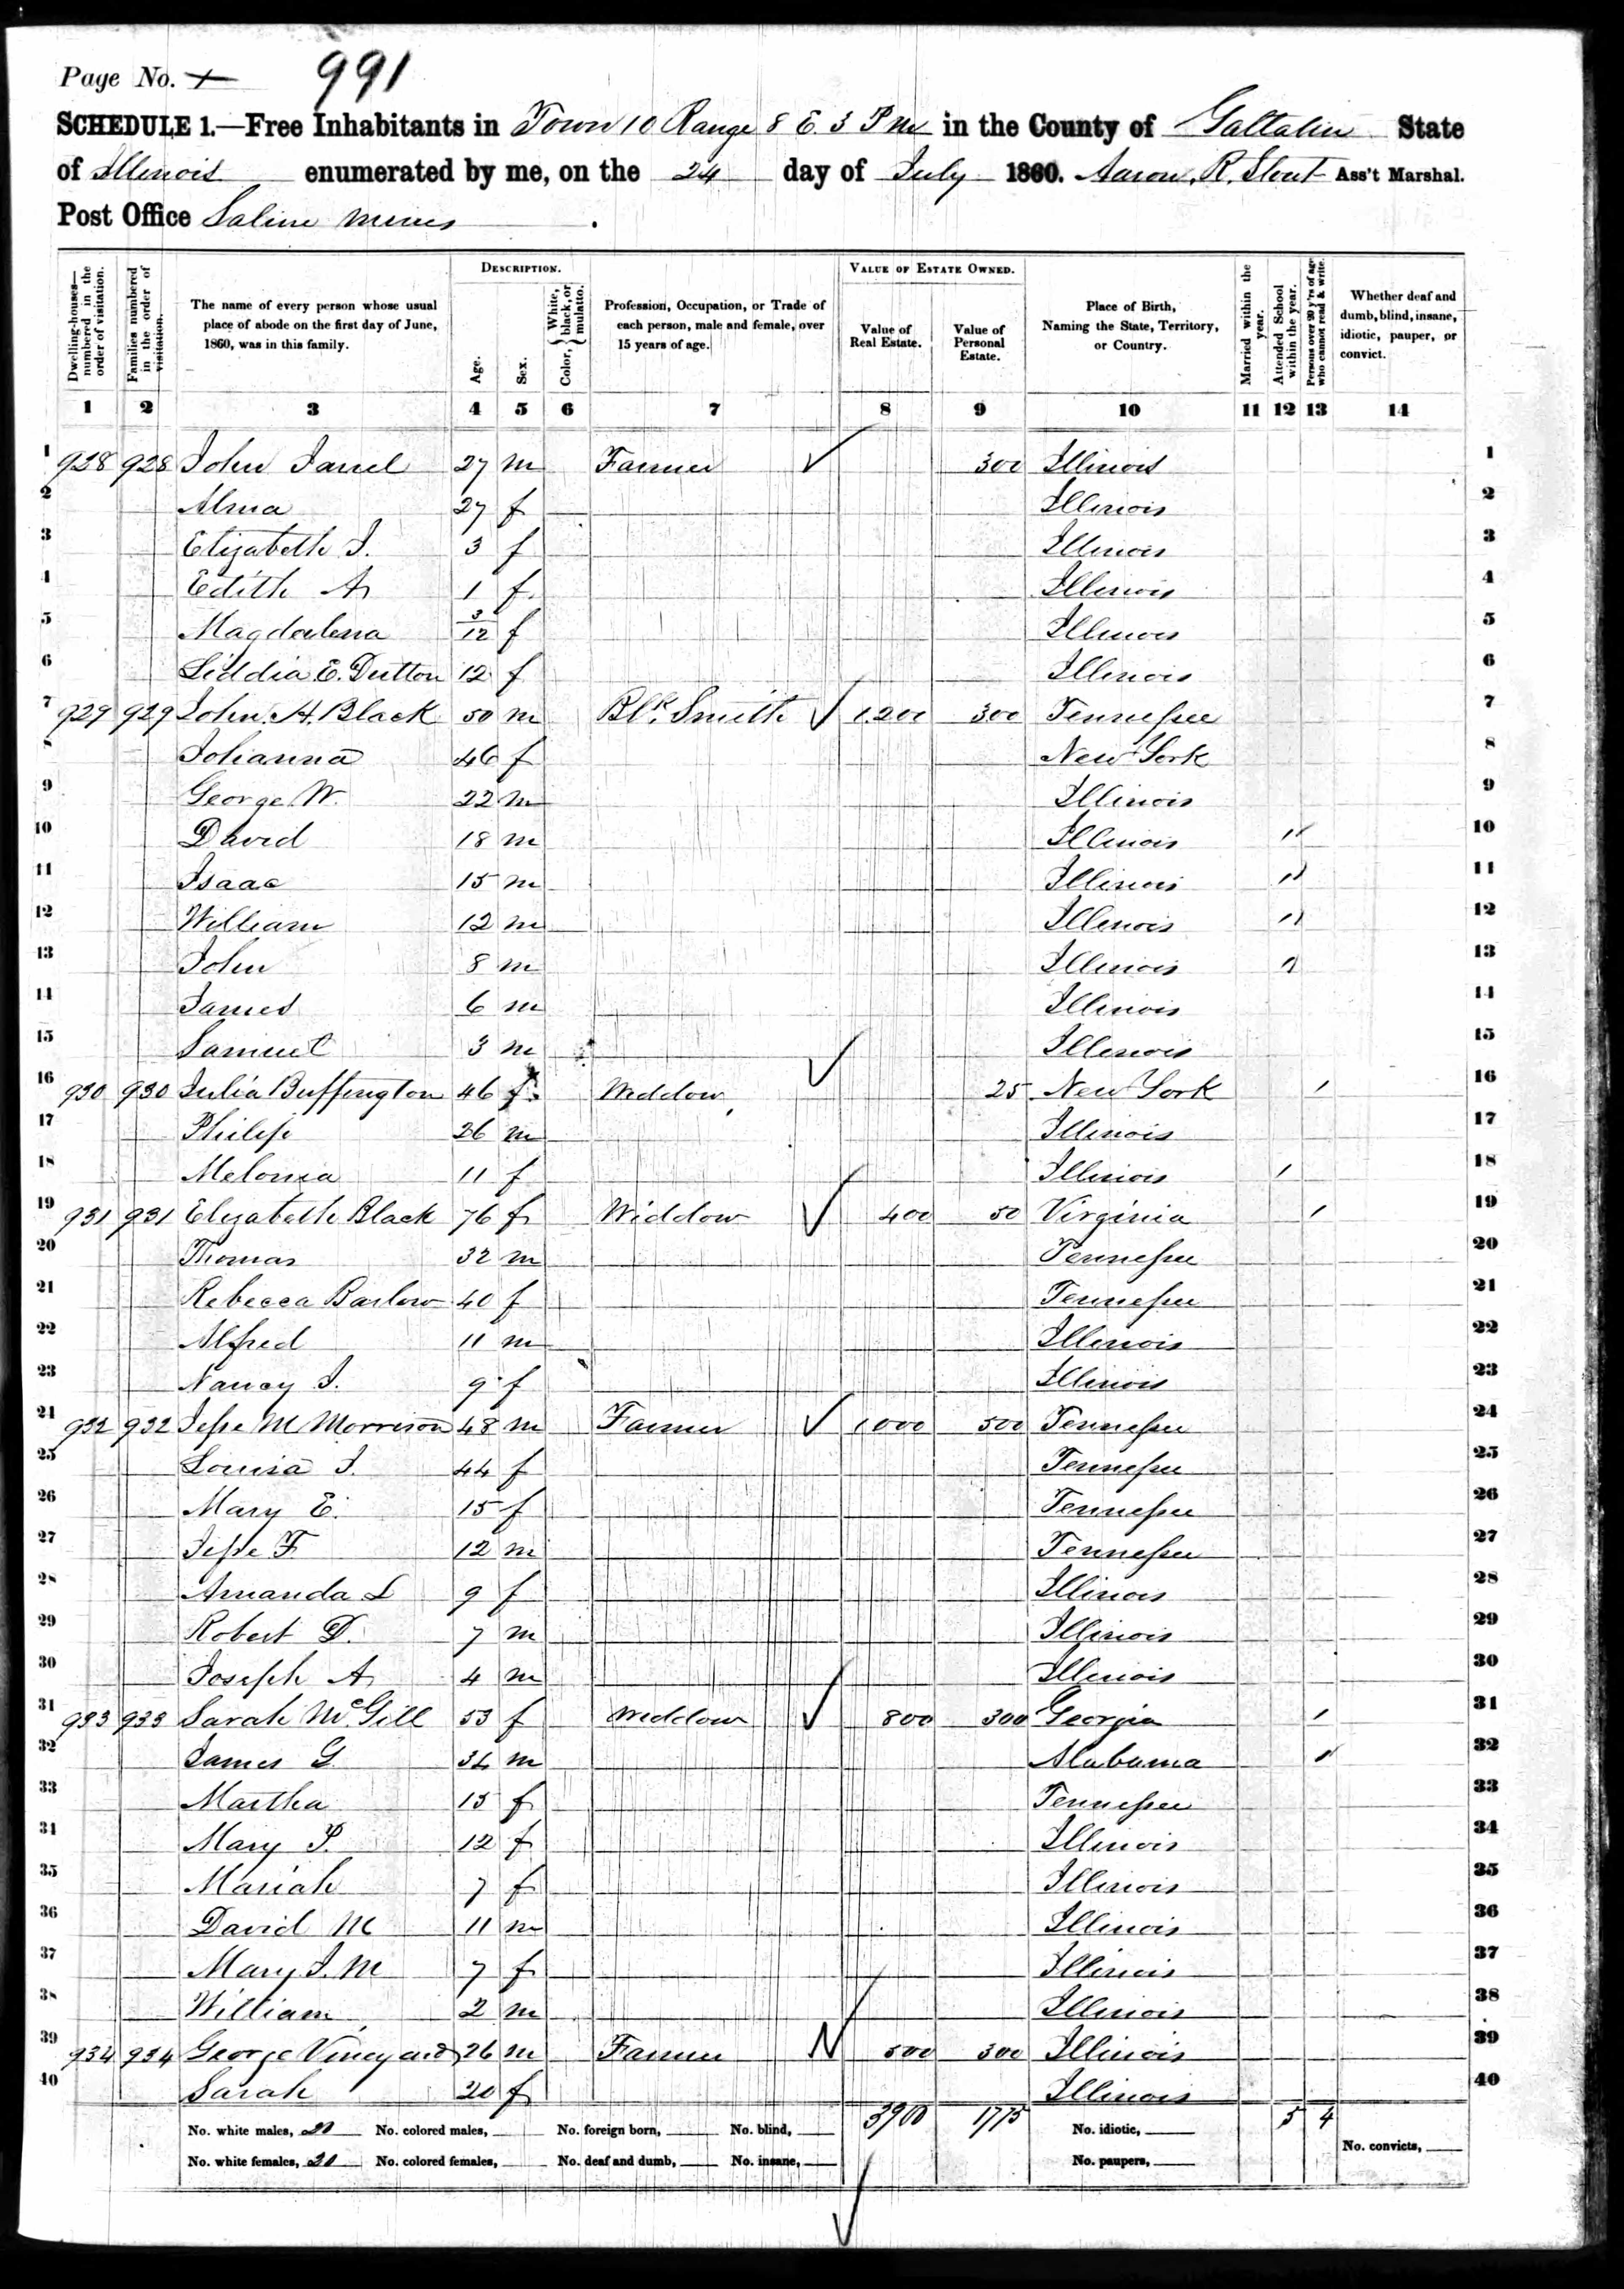 Page No. + 991
SCHEDULE 1.—Free Inhabitants in Town 10 Range 8 E. 3 P M in the County of Gallatin State
of Illinois enumerated by me, on the 24 day of July 1860. Aaron R. Stout Ass't Marshal.
Post Office Saline Mines.
Dwelling-houses—numbered in the order of visitation.
Families numbered in the order of visitation.
The name of every person whose usual place of abode on the first day of June, 1860, was in this family.
DESCRIPTION.
Age.
Sex.
Color, { White, black, or mulatto.
Profession, Occupation, or Trade of each person, male and female, over 15 years of age.
VALUE OF ESTATE OWNED.
Value of Real Estate.
Value of Personal Estate.
Place of Birth, Naming the State, Territory, or Country.
Married within the year.
Attended School within the year.
Persons over 20 y'rs of age who cannot read & write.
Whether deaf and dumb, blind, insane, idiotic, pauper, or convict.
1 2 3 4 5 6 7 8 9 10 11 12 13 14
1 928 928 John 27 m Farmer 300 Illinois 1
2 Alma 27 f Illinois 2
3 Elizabeth J. 3 f Illinois 3
4 Edith A 1 f Illinois 4
5 Magdalena 3/12 f Illinois 5
6 Liddia E. Dutton 12 f Illinois 6
7 929 929 John H. Black 50 m Blk. Smith 1,200 300 Tennessee 7
8 Johanna 46 f New York 8
9 George W. 22 m Illinois 9
10 David 18 m Illinois " 10
11 Isaac 15 m Illinois " 11
12 William 12 m Illinois " 12
13 John 8 m Illinois " 13
14 James 6 m Illinois 14
15 Samuel 3 m Illinois 15
16 930 930 Julia Buffington 46 f Widdow 25 New York / 16
17 Philip 26 m Illinois 17
18 Melonia 11 f Illinois / 18
19 931 931 Elizabeth Black 76 f Widdow 400 50 Virginia / 19
20 Thomas 32 m Tennessee 20
21 Rebecca Barlow 40 f Tennessee 21
22 Alfred 11 m Illinois 22
23 Nancy J. 9 f Illinois 23
24 932 932 Jesse M Morrison 48 m Farmer 1000 500 Tennessee 24
25 Louisa J. 44 f Tennessee 25
26 Mary E. 15 f Tennessee 26
27 Jesse F 12 m Tennessee 27
28 Amanda L 9 f Illinois 28
29 Robert D. 7 m Illinois 29
30 Joseph A 4 m Illinois 30
31 933 933 Sarah McGill 53 f Widdow 800 300 Georgia / 31
32 James G 34 m Alabama / 32
33 Martha 15 f Tennessee 33
34 Mary P. 12 f Illinois 34
35 Mariah 7 f Illinois 35
36 David M 11 m Illinois 36
37 Mary J. M 7 f Illinois 37
38 William 2 m Illinois 38
39 934 934 George Vineyard 26 m Farmer 500 300 Illinois 39
40 Sarah 20 f Illinois 40
No. white males, 20 No. colored males, No. foreign born, No. blind, 3900 1775 No. idiotic, 5 4
No. white females, 20 No. colored females, No. deaf and dumb, No. insane, No. paupers, No. convicts,